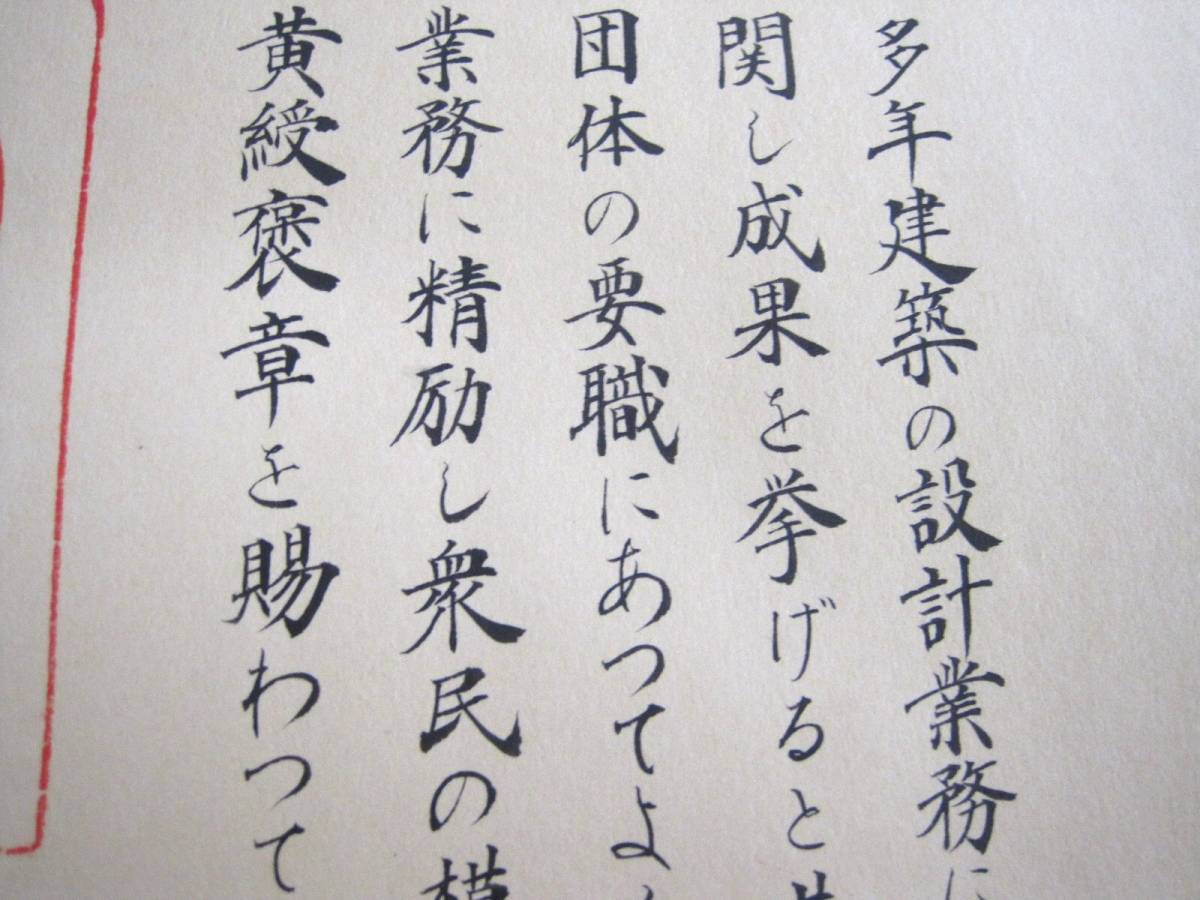 多年建築の設計業務に
関し成果を挙げると
団体の要職にあつてよ
業務に精励し衆民の模
黄綬褒章を賜わつて